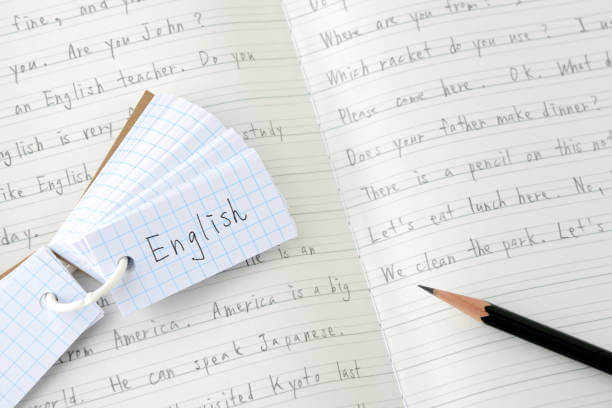 fine, and you
you. Are you John?
an English teacher. Do you
English is very study
like English
day.
He is an
from America. America is a big
world. He can speak Japanese.
visited Kyoto last
English
Where are you from?
Which racket do you use? I
Please come here. OK. What
Does your father make dinner?
There is a pencil on this
Let's eat lunch here. No,
We clean the park. Let's